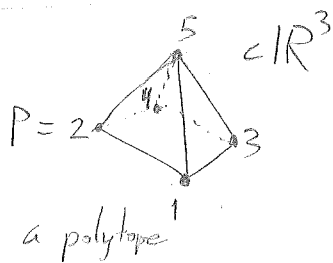 5
⊂ ℝ³
4
P = 2
3
1
a polytope